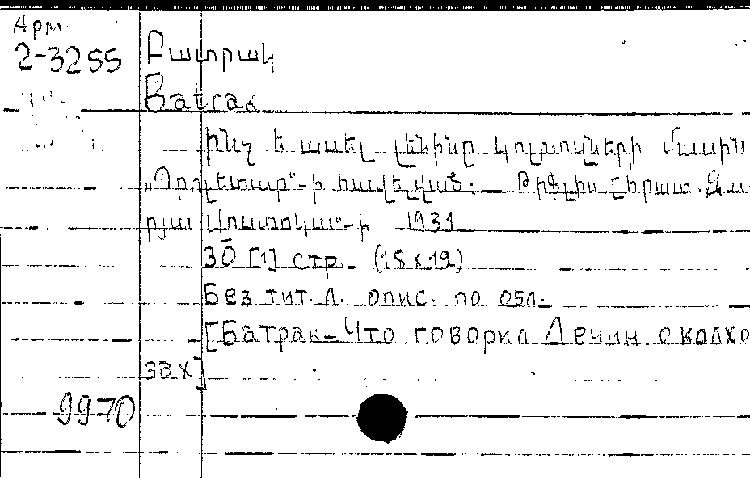 Арм.
2-3255 Բատրակ
Batrak
ինչ է ասել Լենինը կոլտուների մասին
„Պրոլետար“-ի հավելված. — Թիֆլիս
1931
30 [1] стр. (15 x 12)
Без тит. л. опис. по обл.
[Батрак-Что говорил Ленин о колхо
зах]
9970